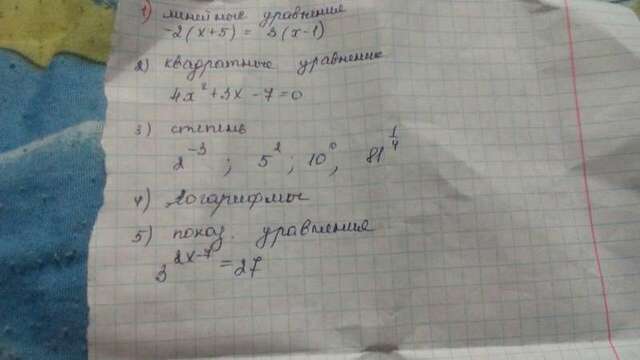 1) линейные уравнения
-2(x+5) = 3(x-1)
2) квадратные уравнение
4x²+3x-7=0
3) степень
2⁻³ ; 5² ; 10⁰, 81^(1/4)
4) Логарифмы
5) показ. уравнения
3^(2x-7) = 27